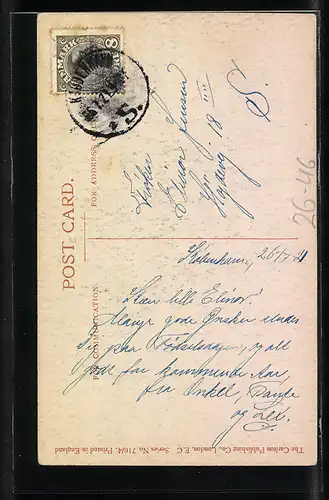 POST CARD.
FOR COMMUNICATION
FOR ADDRESS
DANMARK
8
Frøken
Elinor Jensen
18
S.
København, 26/7 21
Kære lille Elinor!
Mange gode Ønsker sendes
Dig paa Fødselsdag, og alt
godt for kommende Aar,
fra Onkel, Tante
og
26-46
The Carlton Publishing Co., London, E.C. Series No. 716/4. Printed in England